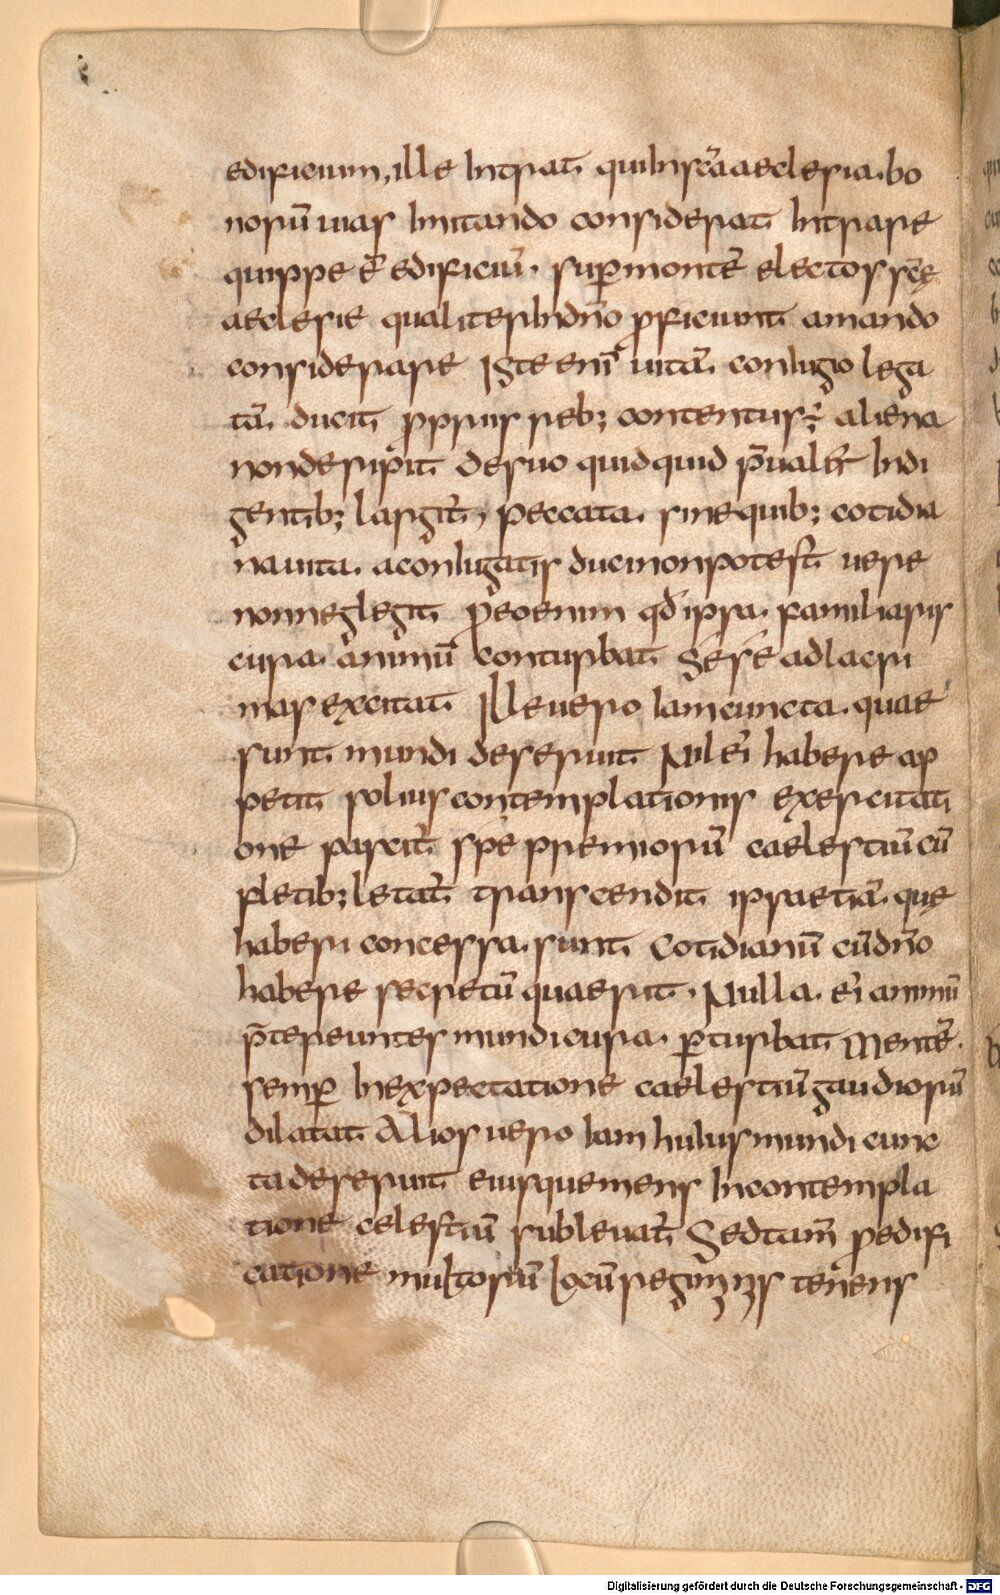 edificium, ille intrat quiinscā aeclesia. bo
norū uias imitando considerat Intrare
quippe ē edificiū. sup montē electos scę
aeclesie qualiter indn̄o p̄ficiunt amando
considerare Iste enī uitā coniugio lega
tā ducit propriis reb; contentus ÷ aliena
nonderipit desuo quidquid p̄ualet Indi
gentib; largit̄, peccata sinequib; cotidia
nauita aconiugatis ducinonpotest uere
nonneglegit p̄eoenim qđ ipsa familiaris
cura animū conturbat Sese adlacri
mas excitat Ille uero iam cuncta quae
sunt mundi deseruit Nil eī habere ap
petit solius contemplationis exercitati
one pascit̄ spe premiorū caelestiū cū
fletib; letat̄ transcendit ipsa etiā que
haberi concessa sunt Cotidianū cū dn̄o
habere secretū quaerit. Nulla eī animū
p̄tereuntes mundi cura p turbat Mentē.
semp Inexpectatione caelestiū gaudiorū
dilatat Alios uero iam huius mundi cunc
ta deseruit eiusquemens Incontempla
tione celestiū subleuat̄ Sed tam̄ p̄edifi
catione multorū locū regiminis tenens
Digitalisierung gefördert durch die Deutsche Forschungsgemeinschaft - DFG